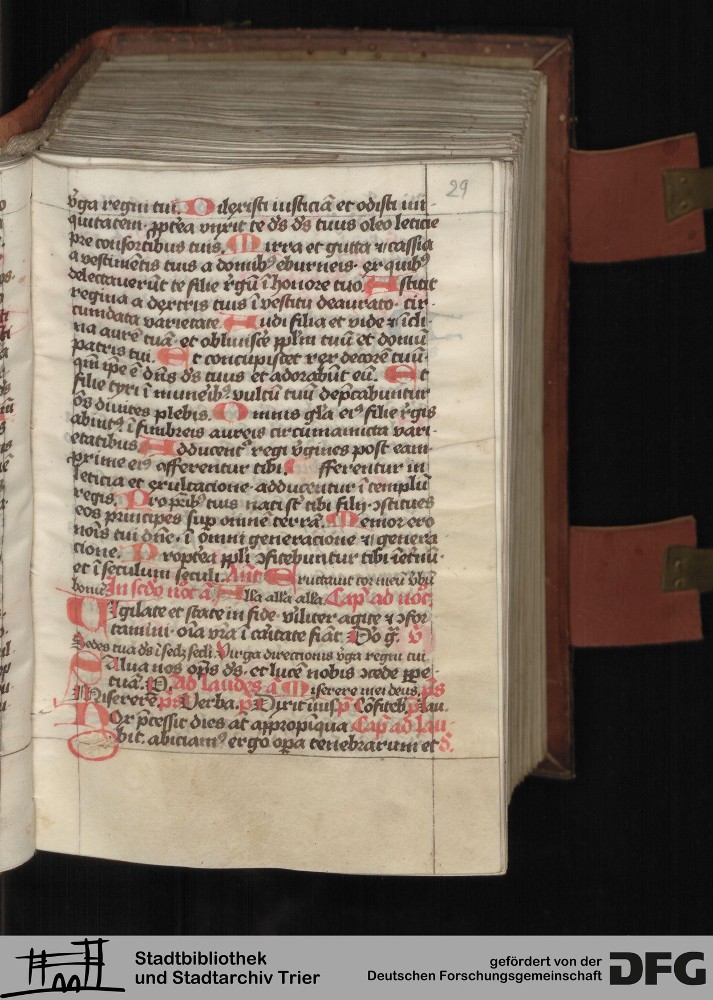 29
v̾ga regni tui. Dilexisti iusticiā et odisti ini-
quitatem · ꝓpt̾ea vnxit te dˢ dˢ tuus oleo leticie
pre consortibus tuis. Mirra et gutta ⁊ cassia
a vestimētis tuis a domibꝫ eburneis · ex quibꝫ
delectauerūt te filie r̾gū ī honore tuo. Astitit
regina a dextris tuis ī vestitu deaurato · cir-
cumdata varietate. Audi filia et vide ⁊ īcli-
na aurē tuā · et obliuisce ppl̄m tuū et domū
patris tui. Et concupiscet rex decorē tuū ·
qm̄ ip̄e ē dn̄s dˢ tuus et adorabūt eū. Et
filie tyri ī muneibꝫ vultū tuū dep̄cabuntur
ōs diuites plebis. Omnis gl̄a eiꝰ filie r̾gis
abintꝰ ī fimbreis aureis circumamicta vari-
etatibus. Adducentᷣ regi v̾gines post eam ·
proxime eiꝰ afferentur tibi. Afferentur in
leticia et exultacione · adducentur ī templū
regis. Pro pr̄ibꝫ tuis nati sᷣt tibi filij · ꝯstitues
eos principes suꝑ omnē terrā. Memor ero
nōis tui dn̄e · ī omni generacione ⁊ genera
cione. Propt̾ea ppl̄i ꝯfitebuntur tibi ī et̾nū ·
et ī seculum seculi. Anͭ Eructauit cor meū v̾bū
bonū In sc̄do noc̄ a̅ Alla alla alla. Cap̄ ad noc̄
Vigilate et state in fide · viril̾iter agite ⁊ ꝯfor
tamini · oīa vr̄a ī caritate fiāt. Do gᷓ. v̾
Sedes tua dˢ ī secl̄ꝫ secl̄i. Virga direccionis v̾ga regni tui
Salua nos op̄s dˢ · et lucē nobis ꝯcede ꝑpe-
tuā. P. Ad laudes a̅ Miserere mei deus. pˢ
Miserere. pˢ Verba. p Dixit iniꝰ. p Cōfiteb. p Lau.
Nox p̄cessit dies aūt appropiqua Cap̄ ad lau-
bit. abiciamꝰ ergo oꝑa tenebrarum et d̾.
Stadtbibliothek
und Stadtarchiv Trier
gefördert von der
Deutschen Forschungsgemeinschaft
DFG